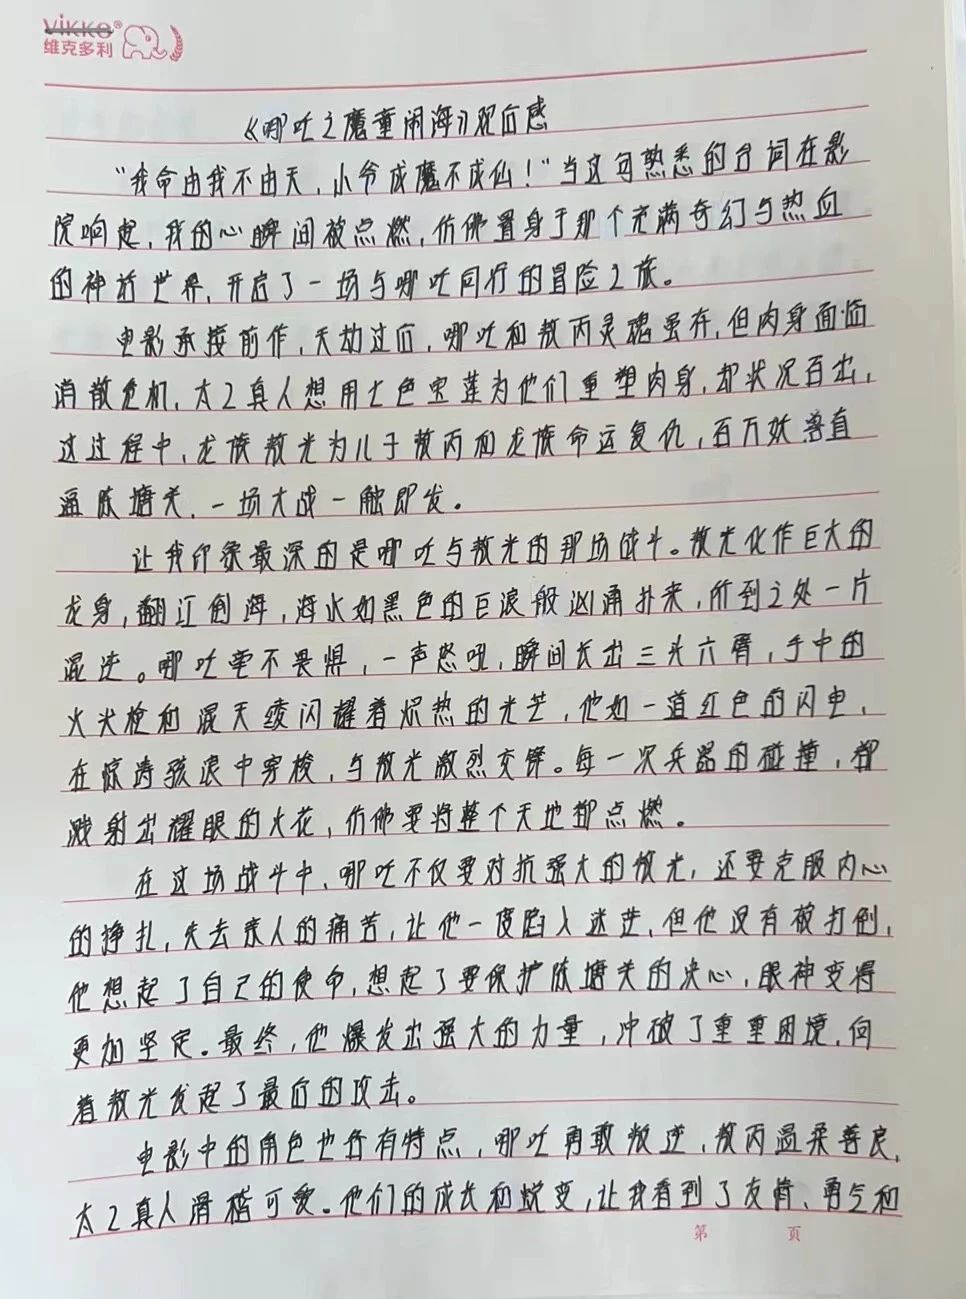 Vikko®
维克多利
《哪吒之魔童闹海》观后感
“我命由我不由天，小爷成魔不成仙！”当这句熟悉的台词在影
院响起，我的心瞬间被点燃，仿佛置身于那个充满奇幻与热血
的神话世界，开启了一场与哪吒同行的冒险之旅。
电影承接前作，天劫过后，哪吒和敖丙灵魂虽存，但肉身面临
消散危机，太乙真人想用七色宝莲为他们重塑肉身，却状况百出，
这过程中，龙族敖光为儿子敖丙和龙族命运复仇，百万妖兽直
逼陈塘关，一场大战一触即发。
让我印象最深的是哪吒与敖光的那场战斗。敖光化作巨大的
龙身，翻江倒海，海水如黑色的巨浪般汹涌扑来，所到之处一片
混迹。哪吒毫不畏惧，一声怒吼，瞬间长出三头六臂，手中的
火尖枪和混天绫闪耀着炽热的光芒，他如一道红色的闪电，
在惊涛骇浪中穿梭，与敖光激烈交锋。每一次兵器的碰撞，都
溅射出耀眼的火花，仿佛要将整个天地都点燃。
在这场战斗中，哪吒不仅要对抗强大的敖光，还要克服内心
的挣扎，失去亲人的痛苦，让他一度陷入迷茫，但他没有被打倒，
他想起了自己的使命，想起了要保护陈塘关的决心，眼神变得
更加坚定。最终，他爆发出强大的力量，冲破了重重困境，向
着敖光发起了最后的攻击。
电影中的角色也各有特点，哪吒勇敢叛逆，敖丙温柔善良，
太乙真人滑稽可爱。他们的成长和蜕变，让我看到了友情、勇气和
第 页